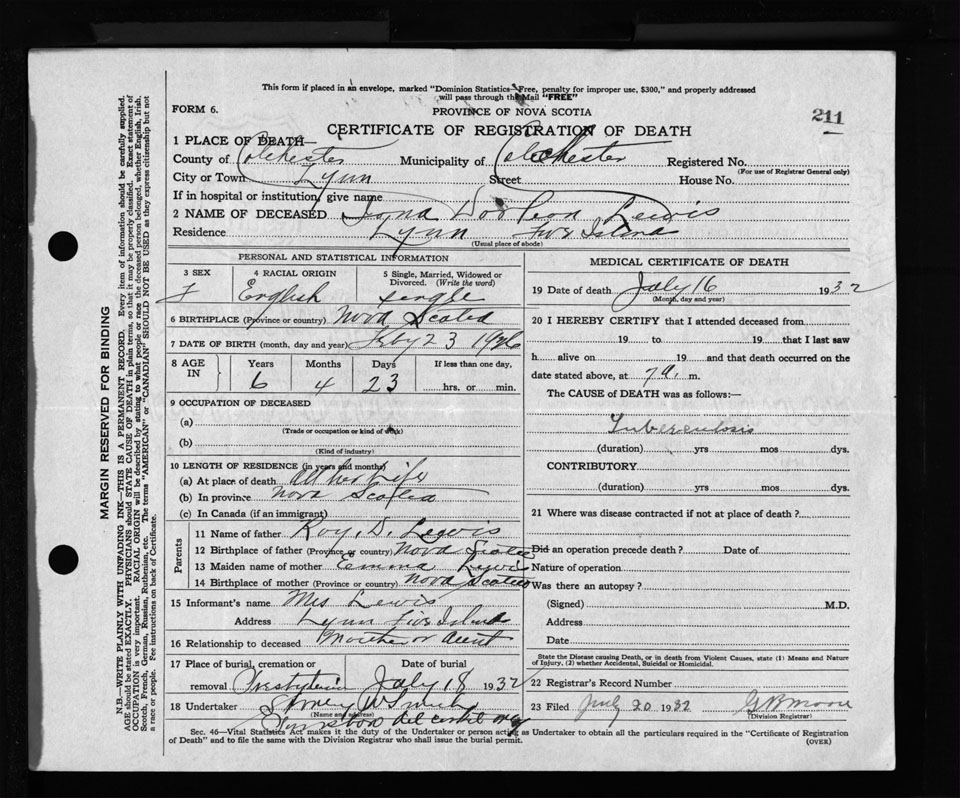 This form if placed in an envelope, marked "Dominion Statistics—Free, penalty for improper use, $300," and properly addressed
will pass through the Mail "FREE"
FORM 6.
PROVINCE OF NOVA SCOTIA
211
CERTIFICATE OF REGISTRATION OF DEATH
1 PLACE OF DEATH—
County of Colchester Municipality of Colchester Registered No.
(For use of Registrar General only)
City or Town Lynn Street House No.
If in hospital or institution, give name
2 NAME OF DECEASED Lewis
Residence Lynn Five Island
(Usual place of abode)
PERSONAL AND STATISTICAL INFORMATION
3 SEX 4 RACIAL ORIGIN 5 Single, Married, Widowed or Divorced. (Write the word)
F English single
6 BIRTHPLACE (Province or country) Nova Scotia
7 DATE OF BIRTH (month, day and year) Feby 23 1926
8 AGE IN Years Months Days If less than one day,
6 4 23 hrs. or min.
9 OCCUPATION OF DECEASED
(a)
(Trade or occupation or kind of work)
(b)
(Kind of industry)
10 LENGTH OF RESIDENCE (in years and months)
(a) At place of death All her Life
(b) In province Nova Scotia
(c) In Canada (if an immigrant)
Parents
11 Name of father Roy. D. Lewis
12 Birthplace of father (Province or country) Nova Scotia
13 Maiden name of mother Emma
14 Birthplace of mother (Province or country) Nova Scotia
15 Informant's name Mrs Lewis
Address Lynn Five Island
16 Relationship to deceased Mother or Aunt
17 Place of burial, cremation or removal Date of burial
Presbyterian July 18 1932
18 Undertaker
(Name and address)
MEDICAL CERTIFICATE OF DEATH
19 Date of death July 16 1932
(Month, day and year)
20 I HEREBY CERTIFY that I attended deceased from
19 to 19 that I last saw
h alive on 19 and that death occurred on the
date stated above, at 7 a. m.
The CAUSE of DEATH was as follows:—
Tuberculosis
(duration) yrs mos dys.
CONTRIBUTORY
(duration) yrs mos dys.
21 Where was disease contracted if not at place of death?
Did an operation precede death? Date of
Nature of operation
Was there an autopsy?
(Signed) M.D.
Address
Date
State the Disease causing Death, or in death from Violent Causes, state (1) Means and Nature
of Injury, (2) whether Accidental, Suicidal or Homicidal.
22 Registrar's Record Number
23 Filed July 20 1932 G B Moore
(Division Registrar)
Sec. 46—Vital Statistics Act makes it the duty of the Undertaker or person acting as Undertaker to obtain all the particulars required in the "Certificate of Registration
of Death" and to file the same with the Division Registrar who shall issue the burial permit.
(OVER)
MARGIN RESERVED FOR BINDING
N.B.—WRITE PLAINLY WITH UNFADING INK—THIS IS A PERMANENT RECORD. Every item of information should be carefully supplied.
AGE should be stated EXACTLY. PHYSICIANS should STATE CAUSE OF DEATH in plain terms, so that it may be properly classified. Exact statement of
OCCUPATION is very important. RACIAL ORIGIN will be described by stating to what people or race the deceased person belonged, whether English, Irish,
Scotch, French, German, Russian, Ruthenian, etc. The terms "AMERICAN" or "CANADIAN" SHOULD NOT BE USED as they express citizenship but not
a race or people. See instructions on back of Certificate.